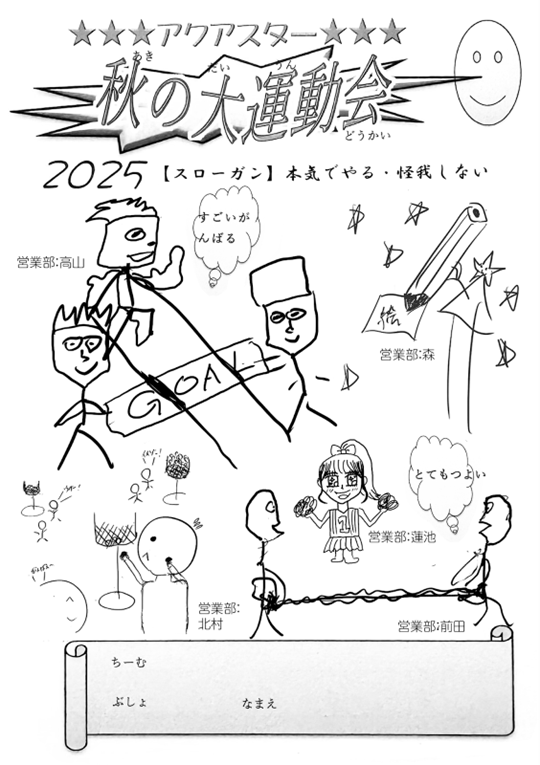 ★★★アクアスター★★★
あき たい うん
秋の大運動会
どうかい
2025 【スローガン】本気でやる・怪我しない
すごいが
んばる
営業部:高山
GOAL
絵
営業部:森
とてもつよい
営業部:蓮池
営業部:
北村
営業部:前田
ちーむ
ぶしょ なまえ